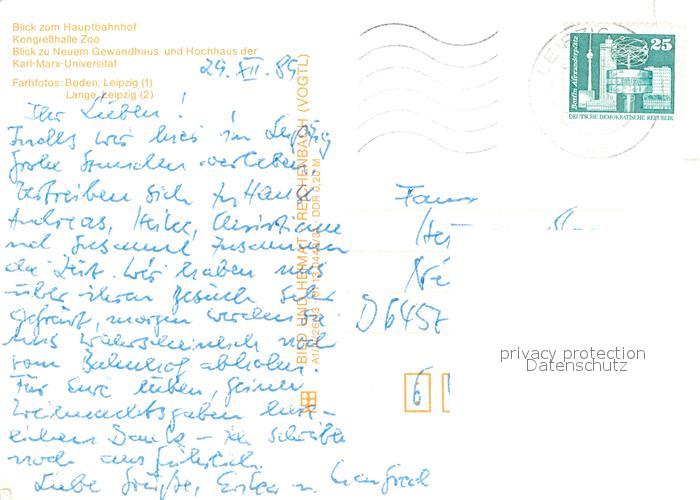 Blick zum Hauptbahnhof
Kongreßhalle Zoo
Blick zu Neuem Gewandhaus und Hochhaus der
Karl-Marx-Universität
Farbfotos: Boden, Leipzig (1)
Lange, Leipzig (2)
24. XII. 89
Ihr Lieben!
wir hier in Leipzig
frohe Stunden verleben,
vertreiben sich zu Hause
Andreas, Heike, Christiane
und Susanne zusammen
die Zeit. Wir haben uns
über ihren Besuch sehr
gefreut, morgen werden sie
uns wahrscheinlich noch
vom Bahnhof abholen.
Für Eure lieben, feinen
Weihnachtsgaben herz-
lichen Dank – ich schreibe
noch ausführlich.
Liebe Grüße, Erika u. Manfred
BILD UND HEIMAT REICHENBACH (VOGTL)
DDR 0,20 M
LEIPZIG
Berlin, Alexanderplatz
25
DEUTSCHE DEMOKRATISCHE REPUBLIK
Fam
D 6457
6
privacy protection
Datenschutz